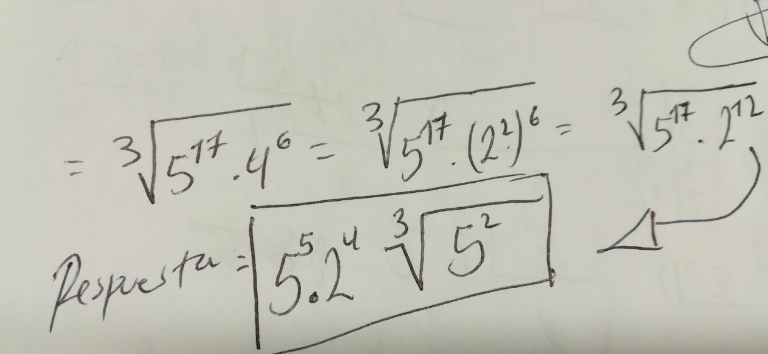 = ∛(5¹⁷·4⁶) = ∛(5¹⁷·(2²)⁶) = ∛(5¹⁷·2¹²)
Respuesta = 5⁵·2⁴ ∛(5²)